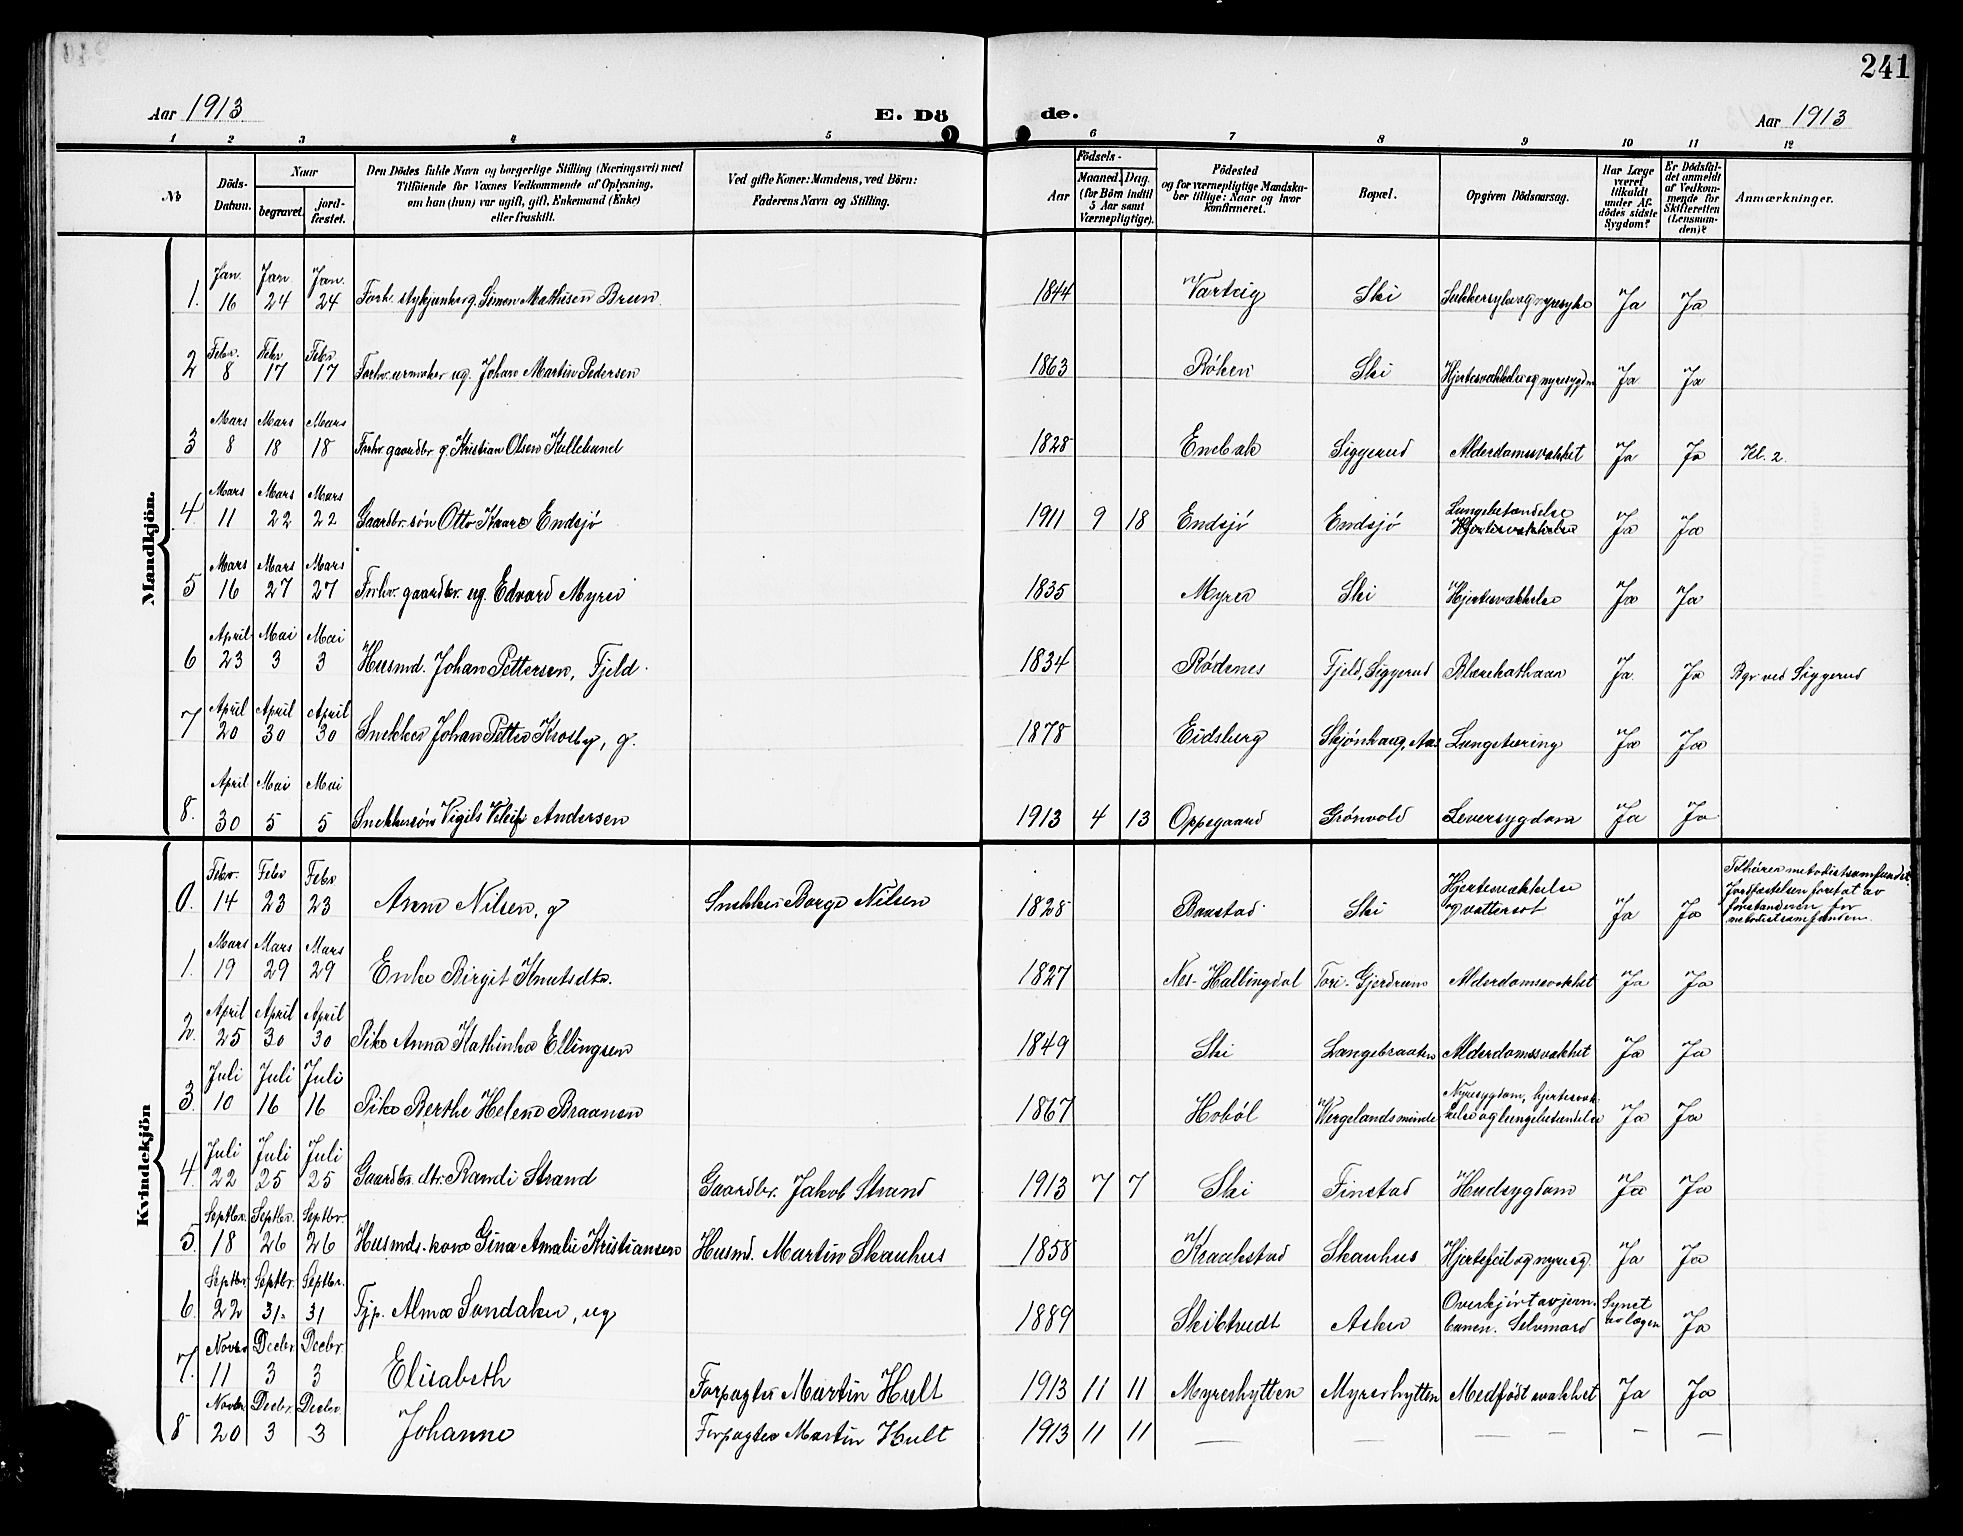 241
Aar 1913 E. Dö de. Aar 1913
1 2 3 4 5 6 7 8 9 10 11 12
No
Döds-Datum.
Naar
begravet.
jord-fæstet.
Den Dödes fulde Navn og borgerlige Stilling (Næringsvei) med
Tilföiende for Voxnes Vedkommende af Oplysning,
om han (hun) var ugift, gift, Enkemand (Enke)
eller fraskilt.
Ved gifte Koner: Mandens, ved Börn:
Faderens Navn og Stilling.
Födsels-
Aar
Maaned. Dag.
(for Börn indtil
5 Aar samt
Værnepligtige).
Födested
og for værnepligtige Mandska-
ber tillige: Naar og hvor
konfirmeret.
Bopæl.
Opgiven Dödsaarsag.
Har Læge
været
tilkaldt
under Af-
dödes sidste
Sygdom?
Er Dödsfal-
det anmeldt
af Vedkom-
mende for
Skifteretten
(Lensman-
den)?
Anmærkninger.
Mandkjön.
1. Jan. 16 Jan. 24 Jan. 24 Forh. stykjunker g. Simon Mathisen Brun 1844 Varteig Ski Sukkersyke og nyresyke Ja Ja
2 Febr. 8 Febr 17 Febr 17 Forhv. urmaker ug. Johan Martin Pedersen 1863 Röken Ski Hjertesvækkelse og nyresygdm Ja Ja
3 Mars 8 Mars 18 Mars 18 Forhv gaardbr g. Kristian Olsen Kullebund 1828 Enebak Siggerud Alderdomssvakhet Ja Ja Kl. 2.
4. Mars 11 Mars 22 Mars 22 Gaardbr. søn Otto Kaare Endsjö 1911 9 18 Endsjö Endsjö Lungebetændelse
Hjertesvækkelse Ja Ja
5 Mars 16 Mars 27 Mars 27 Forhv. gaardbr. ug. Edvard Myrer 1835 Myrer Ski Hjertesvækkelse Ja Ja
6 April 23 Mai 3 Mai 3 Husmd. Johan Pettersen, Fjeld. 1834 Rødenes Fjeld, Siggerud Blærekathaar Ja Ja Bgr ved Siggerud
7 April 20 April 30 April 30 Snekker Johan Petter Krosby, g. 1878 Eidsberg Skjønhaug, Aas Lungetæring Ja Ja
8. April 30 Mai 5 Mai 5 Snekkersøn Vigils Andersen 1913 4 13 Oppegaard Grønvold Leversygdom Ja Ja
Kvindekjön
0. Febr. 14 Febr 23 Febr 23 Anne Nilsen, g Snekker Borge Nilsen 1828 Baastad Ski Hjertesvækkelse
og vattersot Ja Ja Tilhører metodistsamfundet.
Jordfæstelsen foretat av
forstanderen for
metodistsamfundet.
1. Mars 19 Mars 29 Mars 29 Enke Birgit Knutsdtr. 1827 Nes - Hallingdal Tori - Gjerdrum Alderdomssvakhet Ja Ja
2. April 25 April 30 April 30 Pike Anna Kathinka Ellingsen 1849 Ski Langebraaten Alderdomssvakhet Ja Ja
3. Juli 10 Juli 16 Juli 16 Pike Berthe Helene Braanen 1867 Hobøl Wergelandsminde Nyresygdom, hjertesvæk-
kelse og lungebetændelse Ja Ja
4. Juli 22 Juli 25 Juli 25 Gaardbr. dtr. Randi Strand Gaardbr. Jakob Strand 1913 7 7 Ski Finstad Hudsygdom Ja Ja
5. Septbr. 18 Septbr. 26 Septbr. 26 Husmds. kone Gina Amalie Kristiansen Husmd. Martin Skauhus 1858 Kraakstad Skauhus Hjertefeil og nyresg. Ja Ja
6 Septbr 22 Septbr. 31. Septbr. 31 Tjp. Alma Sandaker, ug 1889 Skibtvedt Asker Overkjört av jern-
banen. Selvmord Synet
av lægen Ja
7. Novbr 11 Decbr. 3 Decbr. 3 Elisabeth Forpagter Martin Hult 1913 11 11 Myrerhytten Myrerhytten Medfødt svakhet Ja Ja
8 Novbr. 20 Decbr. 3 Decbr. 3 Johanne Forpagter Martin Hult 1913 11 11 — — — — — —